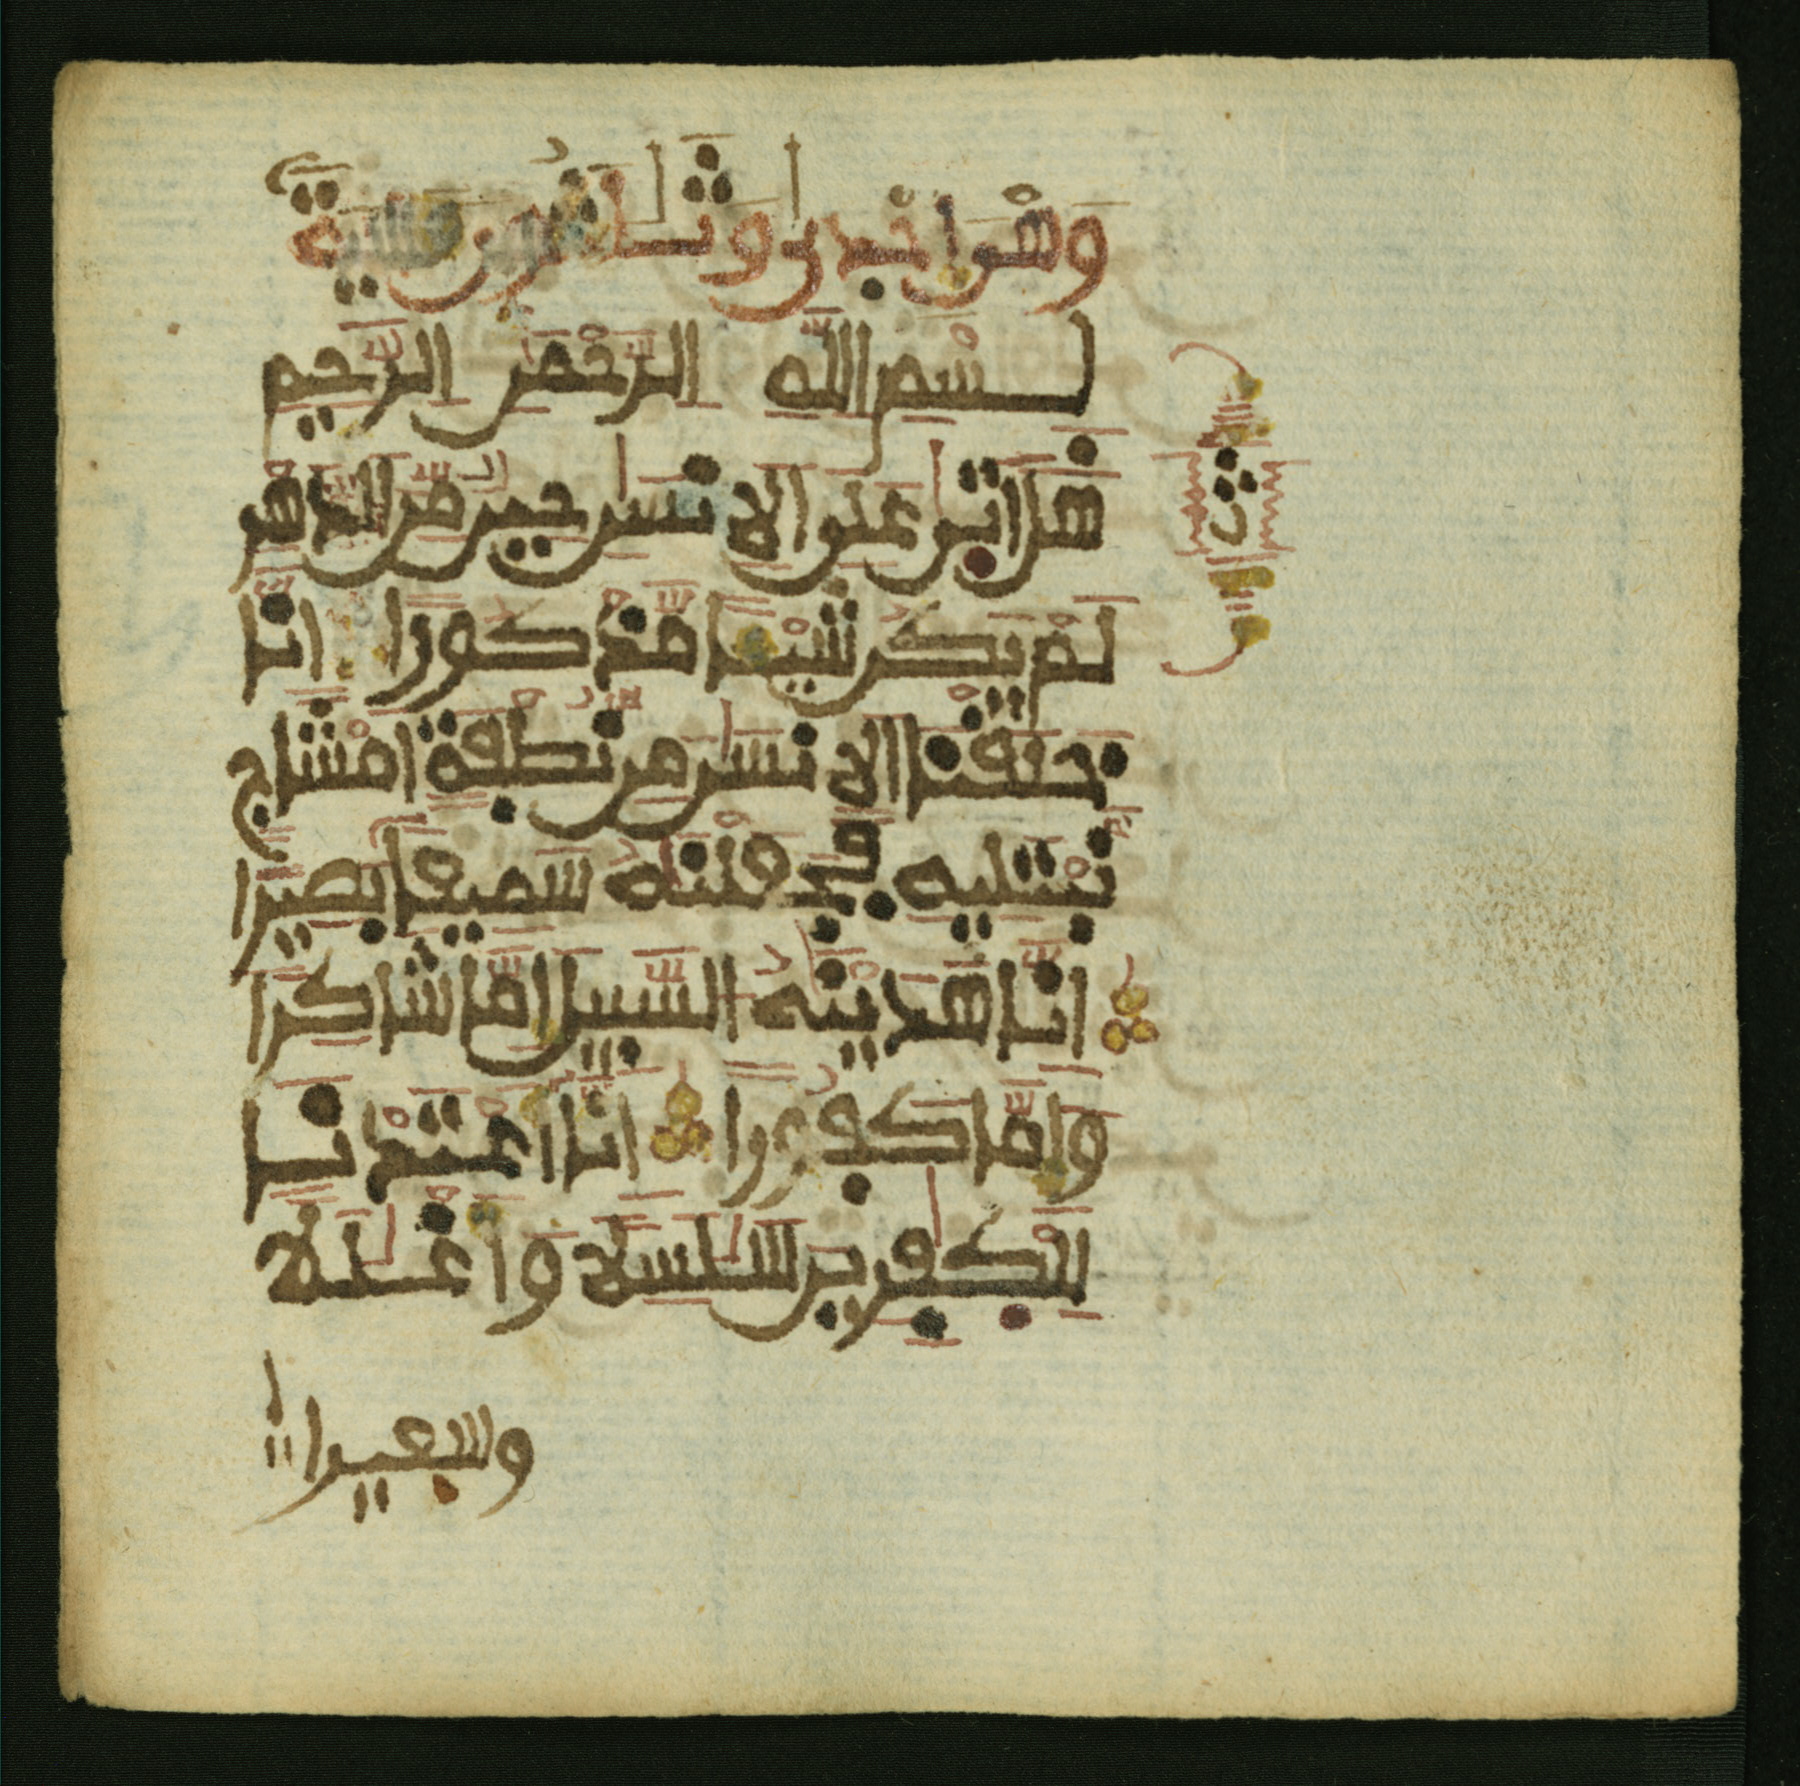 وهو احدى وثلثون
بسم الله الرحمن الرحيم
هل اتى على الانسن حين من الدهر
لم يكن شيئا مذكورا انا
خلقنا الانسن من نطفة امشاج
نبتليه فجعلنه سميعا بصيرا
انا هدينه السبيل اما شاكرا
واما كفورا انا اعتدنا
للكفرين سلسلا واغللا
وسعيرا